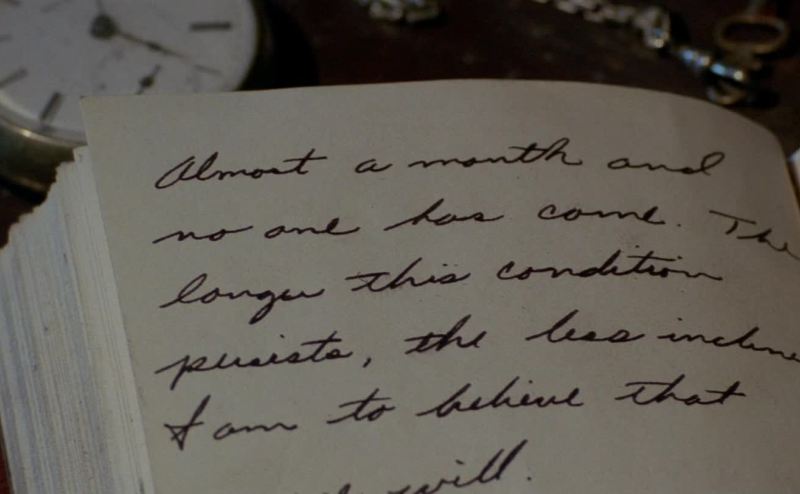 Almost a month and
no one has come. The
longer this condition
persists, the less incline
I am to believe that
will.